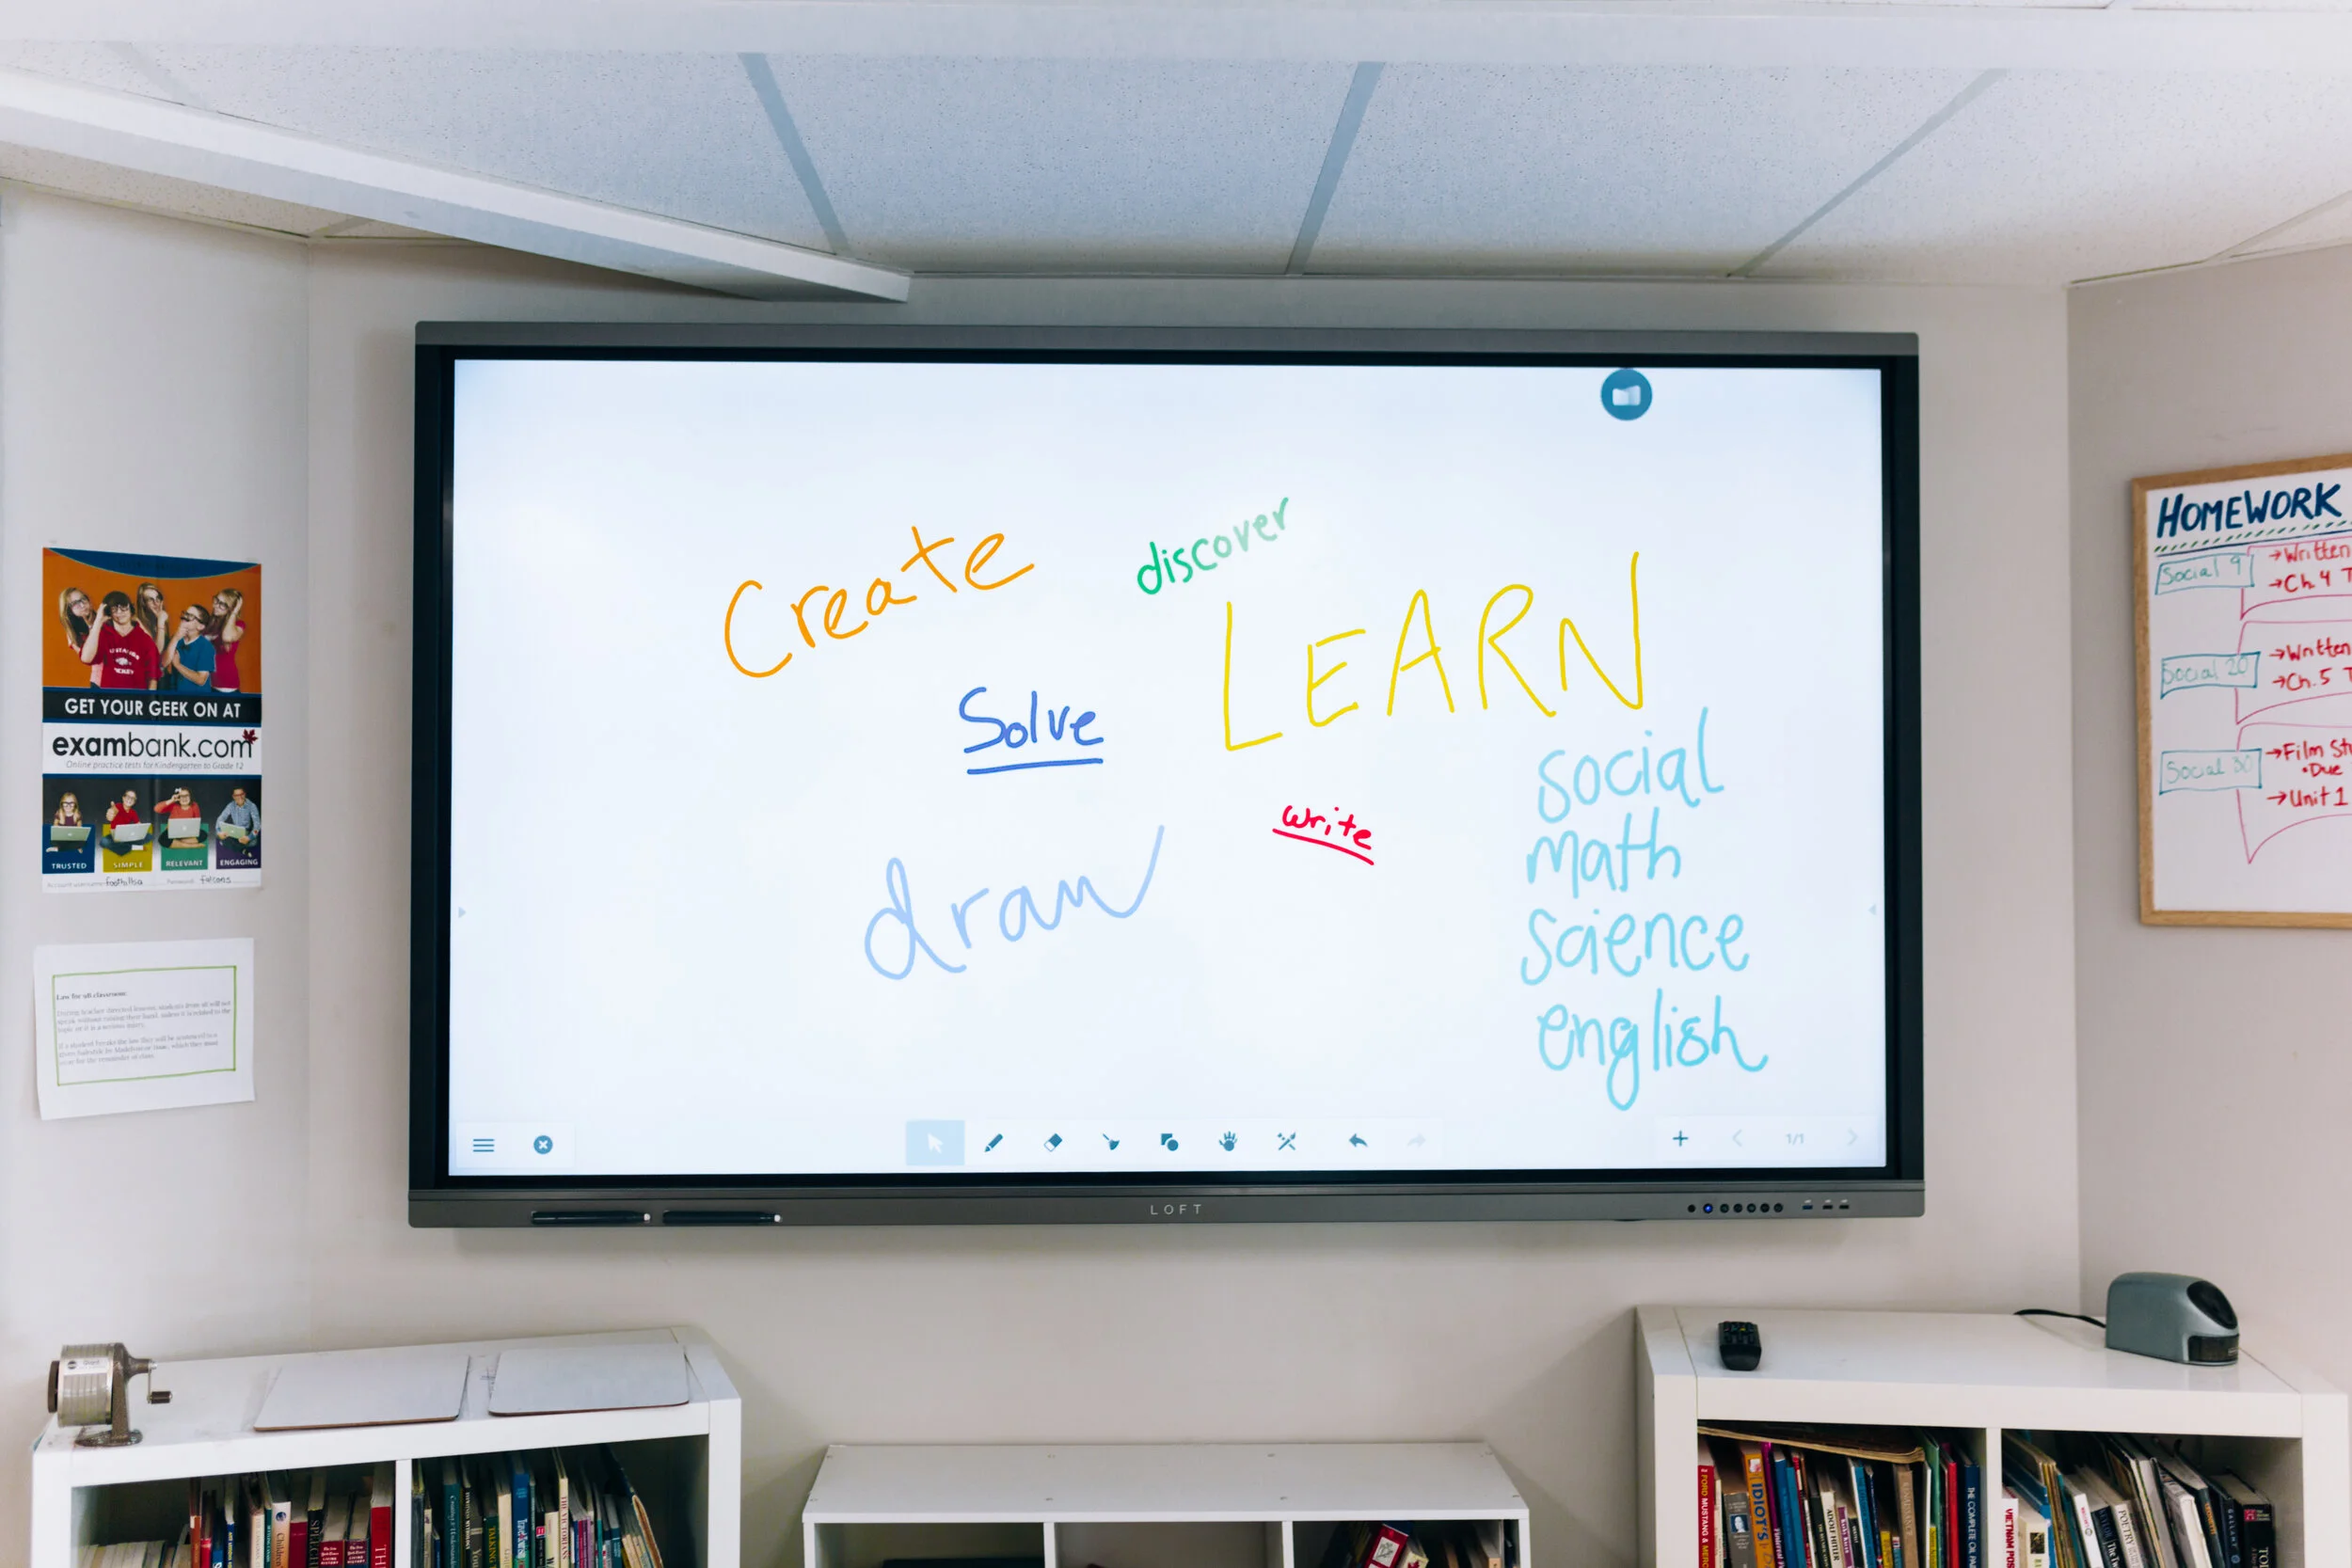 Create
discover
LEARN
Solve
write
draw
social
math
science
english
1/1
LOFT
GET YOUR GEEK ON AT
exambank.com
Online practice tests for Kindergarten to Grade 12
TRUSTED
SIMPLE
RELEVANT
ENGAGING
falcons
HOMEWORK
Social 9
→Written
→Ch. 4 T
Social 20
→Written
→Ch. 5 T
Social 30
→Film Stu
•Due
→Unit 1
IDIOT'S
THE COMPLETE